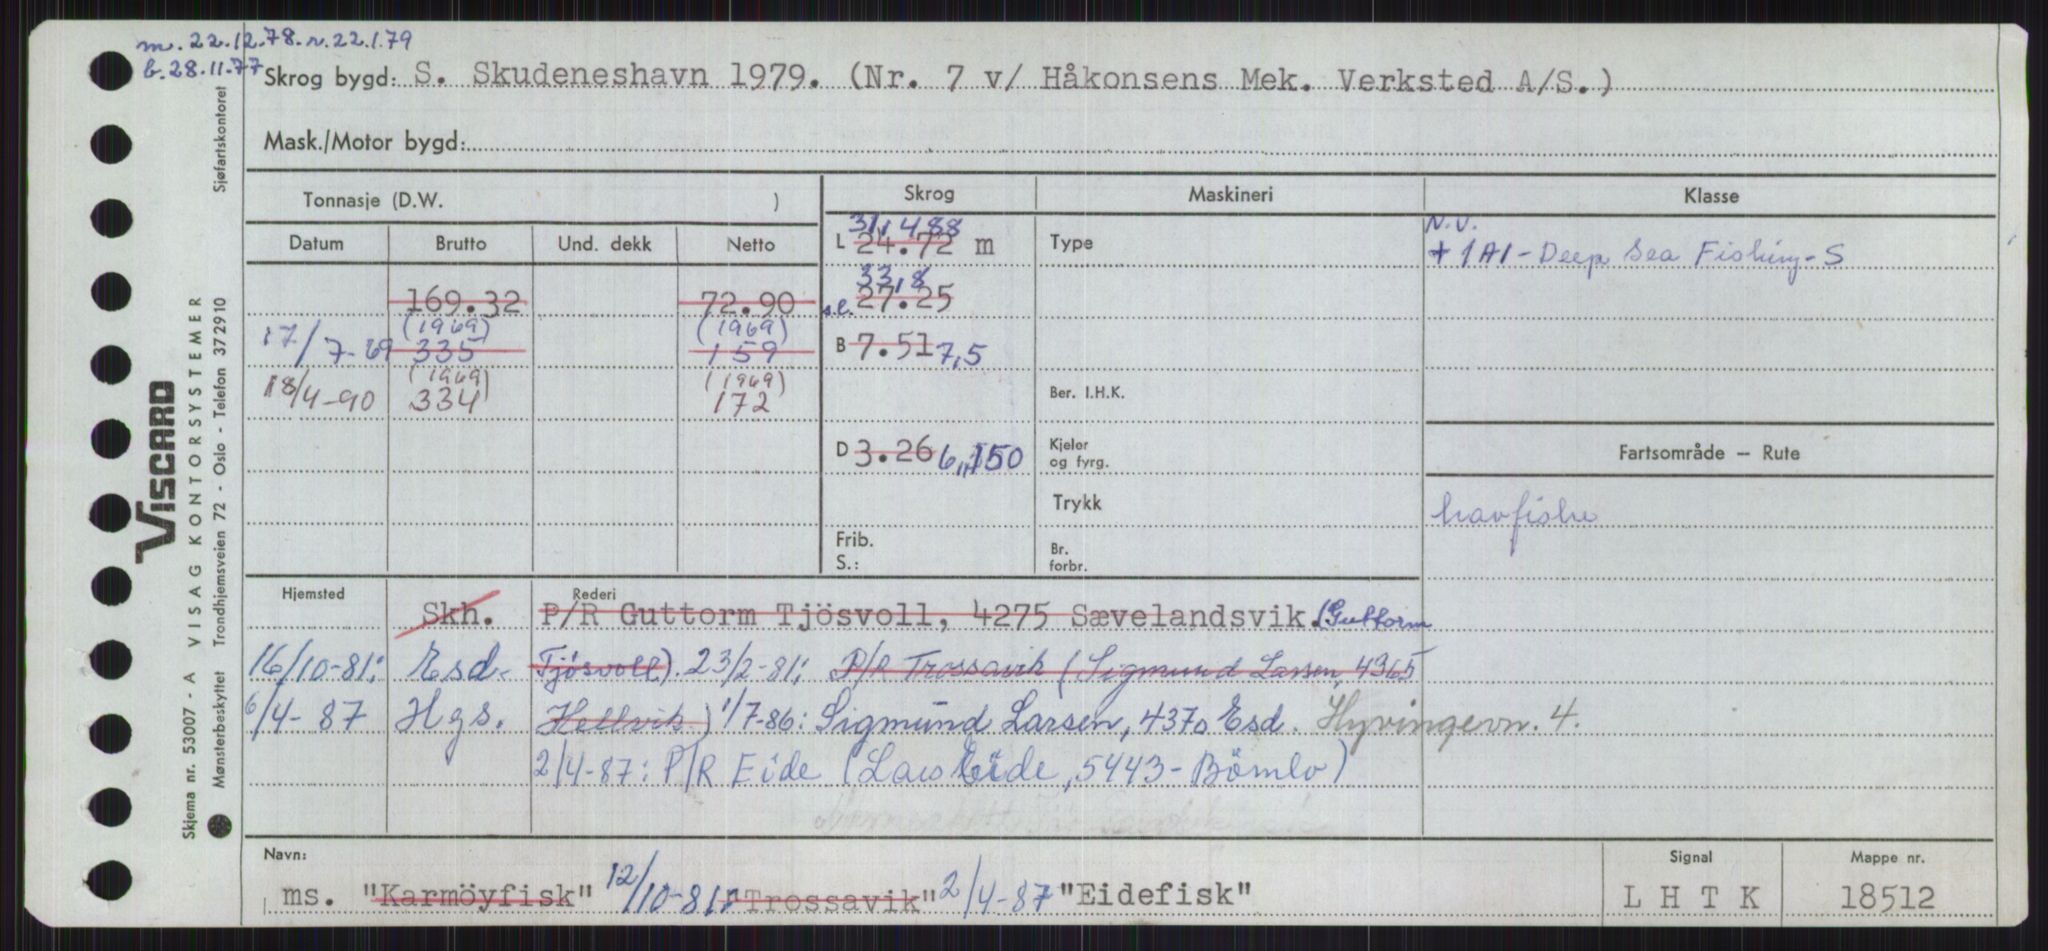 m. 22.12.78. r. 22.1.79
b. 28.11.77
Skrog bygd: S. Skudeneshavn 1979. (Nr. 7 v/ Håkonsens Mek. Verksted A/S.)
Mask./Motor bygd:
Tonnasje (D.W. )
Skrog
Maskineri
Klasse
Datum
Brutto
Und. dekk
Netto
L 24.72 m
31,488
Type
N.V.
+ 1A1 - Deep Sea Fishing - S
169.32
72.90
s.l. 27.25
33,8
17/7-89
(1969)
335
(1969)
159
B 7.51 7,5
18/4-90
(1969)
334
(1969)
172
Ber. I.H.K.
D 3.26 6,150
Kjeler
og fyrg.
Fartsområde — Rute
Trykk
havfiske
Frib.
S.:
Br.
forbr.
Hjemsted
Rederi
Skh.
P/R Guttorm Tjösvoll, 4275 Sævelandsvik. (Guttorm
16/10-81: Esd. Tjösvoll). 23/2-81: P/R Trossavik (Sigmund Larsen, 4365
6/4-87 Hgs. Hellvik) 1/7-86: Sigmund Larsen, 4370 Esd. Hyvingevn. 4.
2/4-87: P/R Eide (Lars Eide, 5443 - Bömlo)
Navn:
Signal
Mappe nr.
ms. "Karmöyfisk" 12/10-81: "Trossavik" 2/4-87 "Eidefisk"
L H T K
18512
VISCARD
Skjema nr. 53007 - A VISAG KONTORSYSTEMER
Mønsterbeskyttet Trondhjemsveien 72 - Oslo - Telefon 372910 Sjøfartskontoret